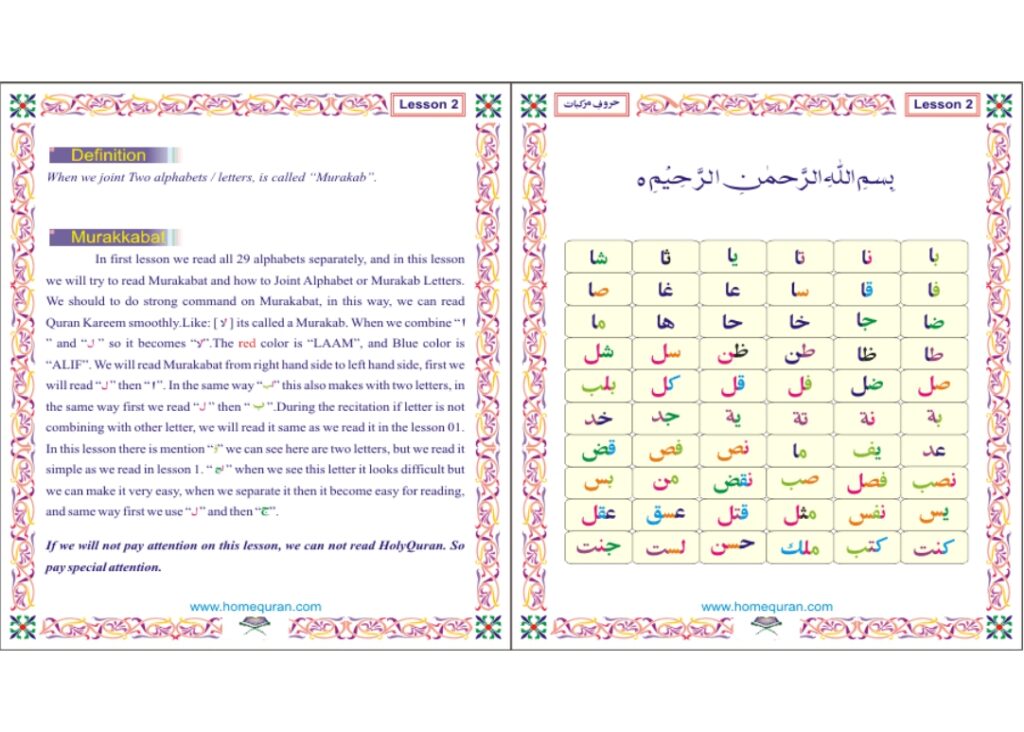 Lesson 2
Definition
When we joint Two alphabets / letters, is called “Murakab”.
Murakkabat
In first lesson we read all 29 alphabets separately, and in this lesson
we will try to read Murakabat and how to Joint Alphabet or Murakab Letters.
We should to do strong command on Murakabat, in this way, we can read
Quran Kareem smoothly.Like: [ لا ] its called a Murakab. When we combine “ ا
” and “ ل ” so it becomes “لا”.The red color is “LAAM”, and Blue color is
“ALIF”. We will read Murakabat from right hand side to left hand side, first we
will read “ ل ” then “ ا ”. In the same way “ ” this also makes with two letters, in
the same way first we read “ ل ” then “ ب ”.During the recitation if letter is not
combining with other letter, we will read it same as we read it in the lesson 01.
In this lesson there is mention “ ” we can see here are two letters, but we read it
simple as we read in lesson 1. “ ” when we see this letter it looks difficult but
we can make it very easy, when we separate it then it become easy for reading,
and same way first we use “ ل ” and then “ ج ”.
If we will not pay attention on this lesson, we can not read HolyQuran. So
pay special attention.
www.homequran.com
حروف مرکبات
Lesson 2
بِسمِ اللّٰهِ الرَّحمٰنِ الرَّحِيْمِ ه
با نا تا يا ثا شا
فا قا سا عا غا صا
ضا جا خا حا ها ما
طا ظا طن ظن سل شل
صل ضل فل قل كل بلب
بة نة تة ية جد خد
عد يف ما نص فص قض
نصب فصل صب نقض من بس
يس نفس مثل قتل عسق عقل
كنت كتب ملك حسن لست جنت
www.homequran.com